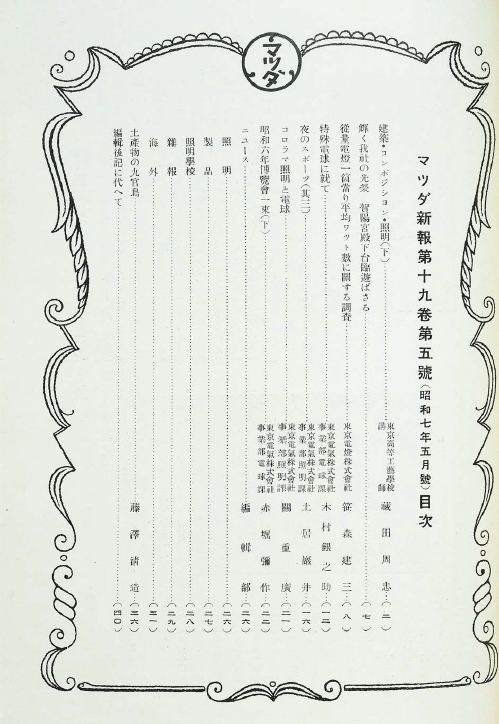 マツダ
マツダ新報第十九卷第五號(昭和七年五月號)目次
建築・コンポジション・照明(下)…東京高等工藝學校講師 藏田周忠…(二)
輝く我社の光榮 智陽宮殿下台臨遊ばさる…(七)
從量電燈一箇當り平均ワット數に關する調査…東京電燈株式會社 笹森建三…(八)
特殊電球に就て…東京電氣株式會社事業部電球課 木村銀之助…(一二)
夜のスポーツ(其三)…東京電氣株式會社事業部照明課 土居巖井…(一六)
コロラマ照明と電球…東京電氣株式會社事業部照明課 關重廣…(二一)
昭和六年博覽會一束(下)…東京電氣株式會社事業部電球課 赤堀彌作…(二二)
ニュース…編輯部…(二六)
照明…(二六)
製品…(二七)
照明學校…(二八)
雜報…(二九)
海外…(三一)
土產物の九官鳥…藤澤清造…(三六)
編輯後記に代へて…(四〇)